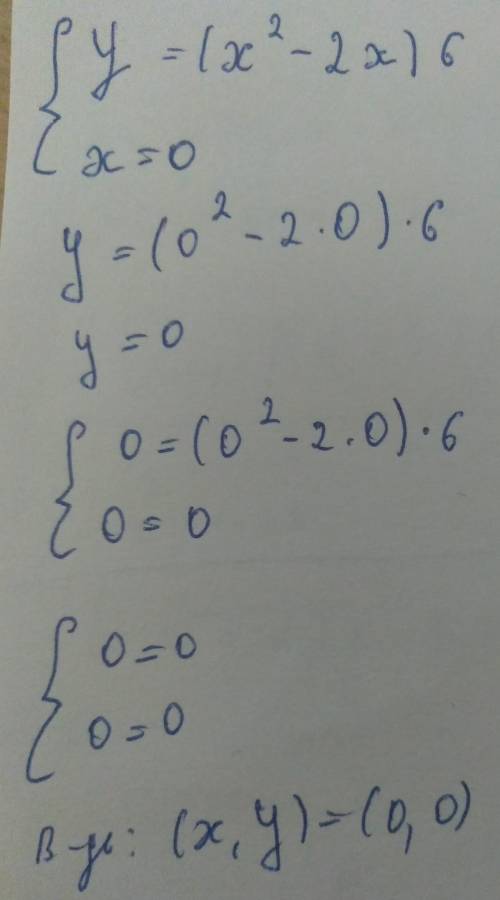 { y = (x² - 2x) 6
x = 0
y = (0² - 2 · 0) · 6
y = 0
{ 0 = (0² - 2 · 0) · 6
0 = 0
{ 0 = 0
0 = 0
в-дь: (x, y) = (0, 0)